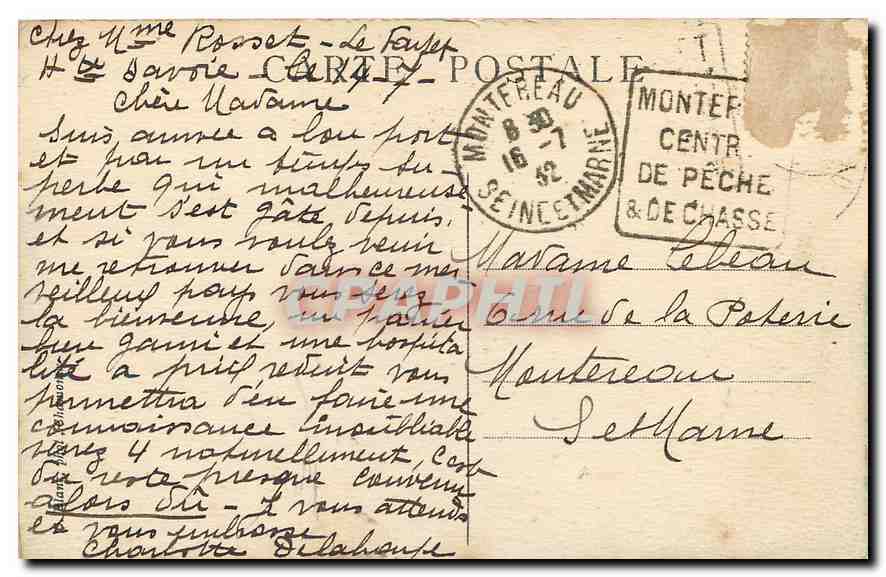 Chez Mme Rosset - Le Fayet
Hte Savoie - Le 14-7-
CARTE POSTALE
Chère Madame
Suis arrivée a bon port
et par un temps su
perbe qui malheureuse-
ment s'est gâté depuis,
et si vous voulez venir
me retrouver dans ce mer
veilleux pays vous serez
la bienvenue, un panier
bien garni et une hospita
lité a prix reduit vous
permettra d'en faire une
connaissance inoubliable
venez 4 naturellement, c'est
du reste presque convenu
alors dû - Je vous attends
et vous embrasse
Charlotte
MONTEREAU
8 30
16 -7
32
SEINE ET MARNE
T
MONTER
CENTR
DE PÊCHE
& DE CHASSE
Madame Lebeau
rue de la Poterie
Montereau
S et Marne
CPAPHIL